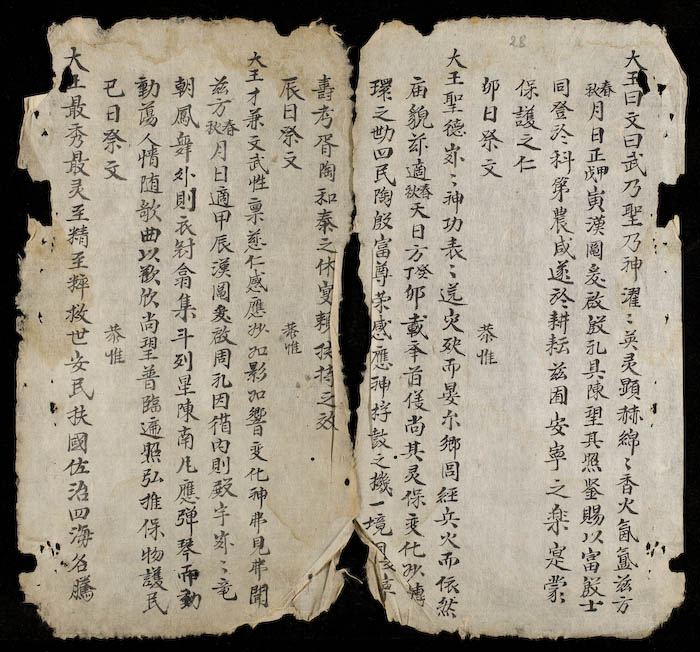 28
大王曰文曰武乃聖乃神濯〻英灵顕赫綿〻香火氤氳兹方
春秋月日正岬寅漢圖爰啟殷礼具陳望其照鉴賜以富殷士
同登於科第農咸遂於耕耘兹囿安寧之楽寔蒙
保護之仁
卯日祭文
恭惟
大王聖德弥〻神功表〻近火砍而晏尓鄉閭経兵火而依然
庙貌兹適春秋天日方丁癸卯載奉首侵尚其灵保变化妙
環之四民陶殷富尊荣感應神桴鼓之機一境
壽考胥陶和泰之休寔頼扶持之效
辰日祭文
恭惟
大王才兼文武性禀慈仁感應妙如影如響变化神弗見弗聞
兹方春秋月日適甲辰漢圖爰啟周礼因循内則殿宇弥〻竜
朝鳳舞外則衣冠翕集斗列星陳南凡應弹琴而動
動蕩人情随歌曲以歡欣尚望普臨遍照弘推保物護民
巳日祭文
恭惟
大王最秀最灵至精至粹救世安民扶國佐治四海名騰